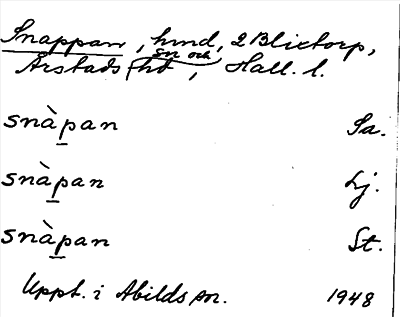 Snappan, hmd, 2 Blixtorp,
sn och
Årstads hd, Hall. l.
snàpan Sa.
snàpan Lj.
snàpan St.
Uppt. i Abilds sn. 1948